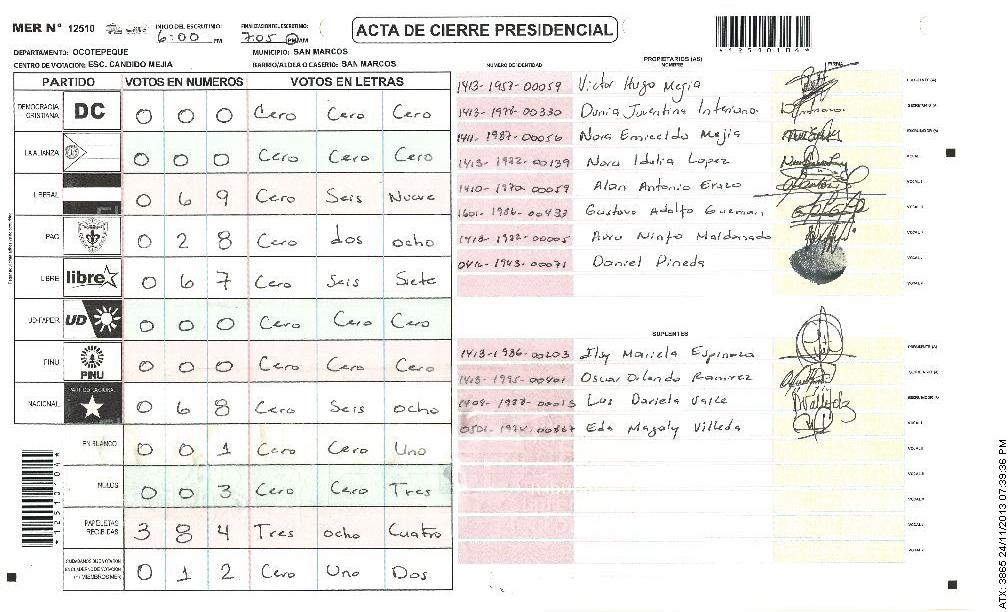 MER N° 12510 INICIO DEL ESCRUTINIO: 6:00 PM FINALIZACION DEL ESCRUTINIO: 7:05 PM AM
ACTA DE CIERRE PRESIDENCIAL
DEPARTAMENTO: OCOTEPEQUE MUNICIPIO: SAN MARCOS
CENTRO DE VOTACION: ESC. CANDIDO MEJIA BARRIO/ALDEA O CASERIO: SAN MARCOS
PARTIDO VOTOS EN NUMEROS VOTOS EN LETRAS
DEMOCRACIA CRISTIANA DC 0 0 0 Cero Cero Cero
LA ALIANZA 0 0 0 Cero Cero Cero
LIBERAL 0 6 9 Cero Seis Nueve
PAC 0 2 8 Cero dos ocho
LIBRE libre 0 6 7 Cero Seis Siete
UD-FAPER UD 0 0 0 Cero Cero Cero
PINU PINU 0 0 0 Cero Cero Cero
NACIONAL PARTIDO NACIONAL 0 6 8 Cero Seis ocho
EN BLANCO 0 0 1 Cero Cero Uno
NULOS 0 0 3 Cero Cero Tres
PAPELETAS RECIBIDAS 3 8 4 Tres ocho Cuatro
0 1 2 Cero Uno Dos
*12510104*
PROPIETARIOS (AS)
NUMERO DE IDENTIDAD NOMBRE FIRMA
1413-1957-00059 Victor Hugo Mejia
1413-1978-00330 Dunia Juventina Interiano
1411-1987-00056 Nora Mejia
1413-1982-00139 Nora Idalia Lopez
1410-1970-00059 Alan Antonio Erazo
1601-1986-00433 Gustavo Adolfo Guzman
Ninfo Maldonado
0416-1943-00071 Daniel Pineda
SUPLENTES
1413-1986-00203 Ilsy Mariela Espinoza
1413-1995-00401 Oscar Orlando Ramirez
Dariela Valle
Eda Magaly Villeda
*12510104*
ATX: 3865 24/11/2013 07:39:36 PM